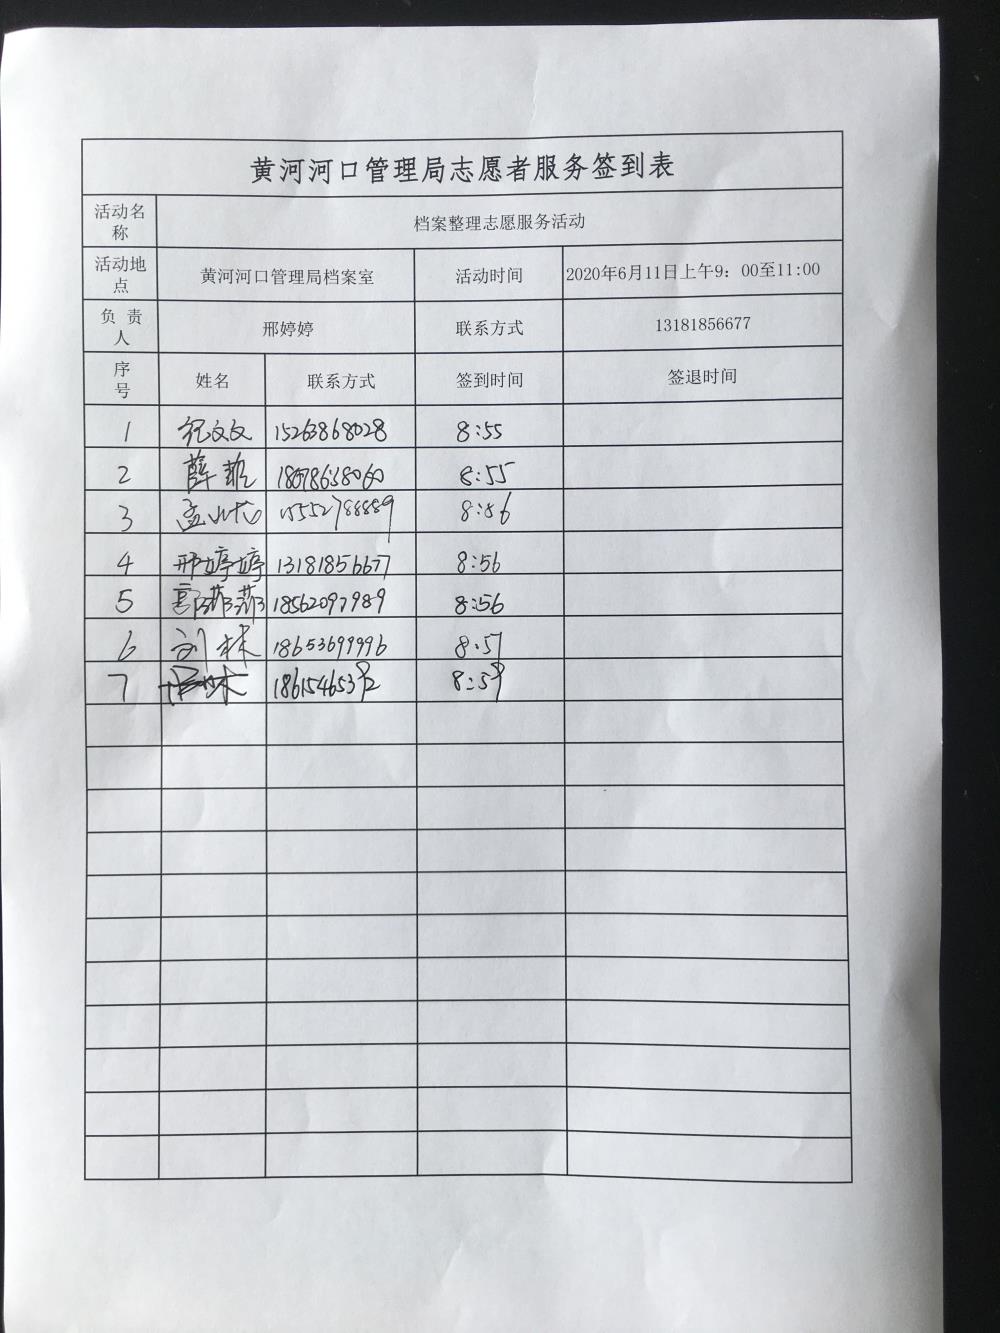 黄河河口管理局志愿者服务签到表
活动名称 档案整理志愿服务活动
活动地点 黄河河口管理局档案室 活动时间 2020年6月11日上午9：00至11:00
负责人 邢婷婷 联系方式 13181856677
序号 姓名 联系方式 签到时间 签退时间
1 纪文文 15263868028 8:55
2 薛菲 8:55
3 15552788889 8:56
4 邢婷婷 13181856677 8:56
5 郭莎莎 18562097989 8:56
6 刘林 18653699996 8:57
7 8:59